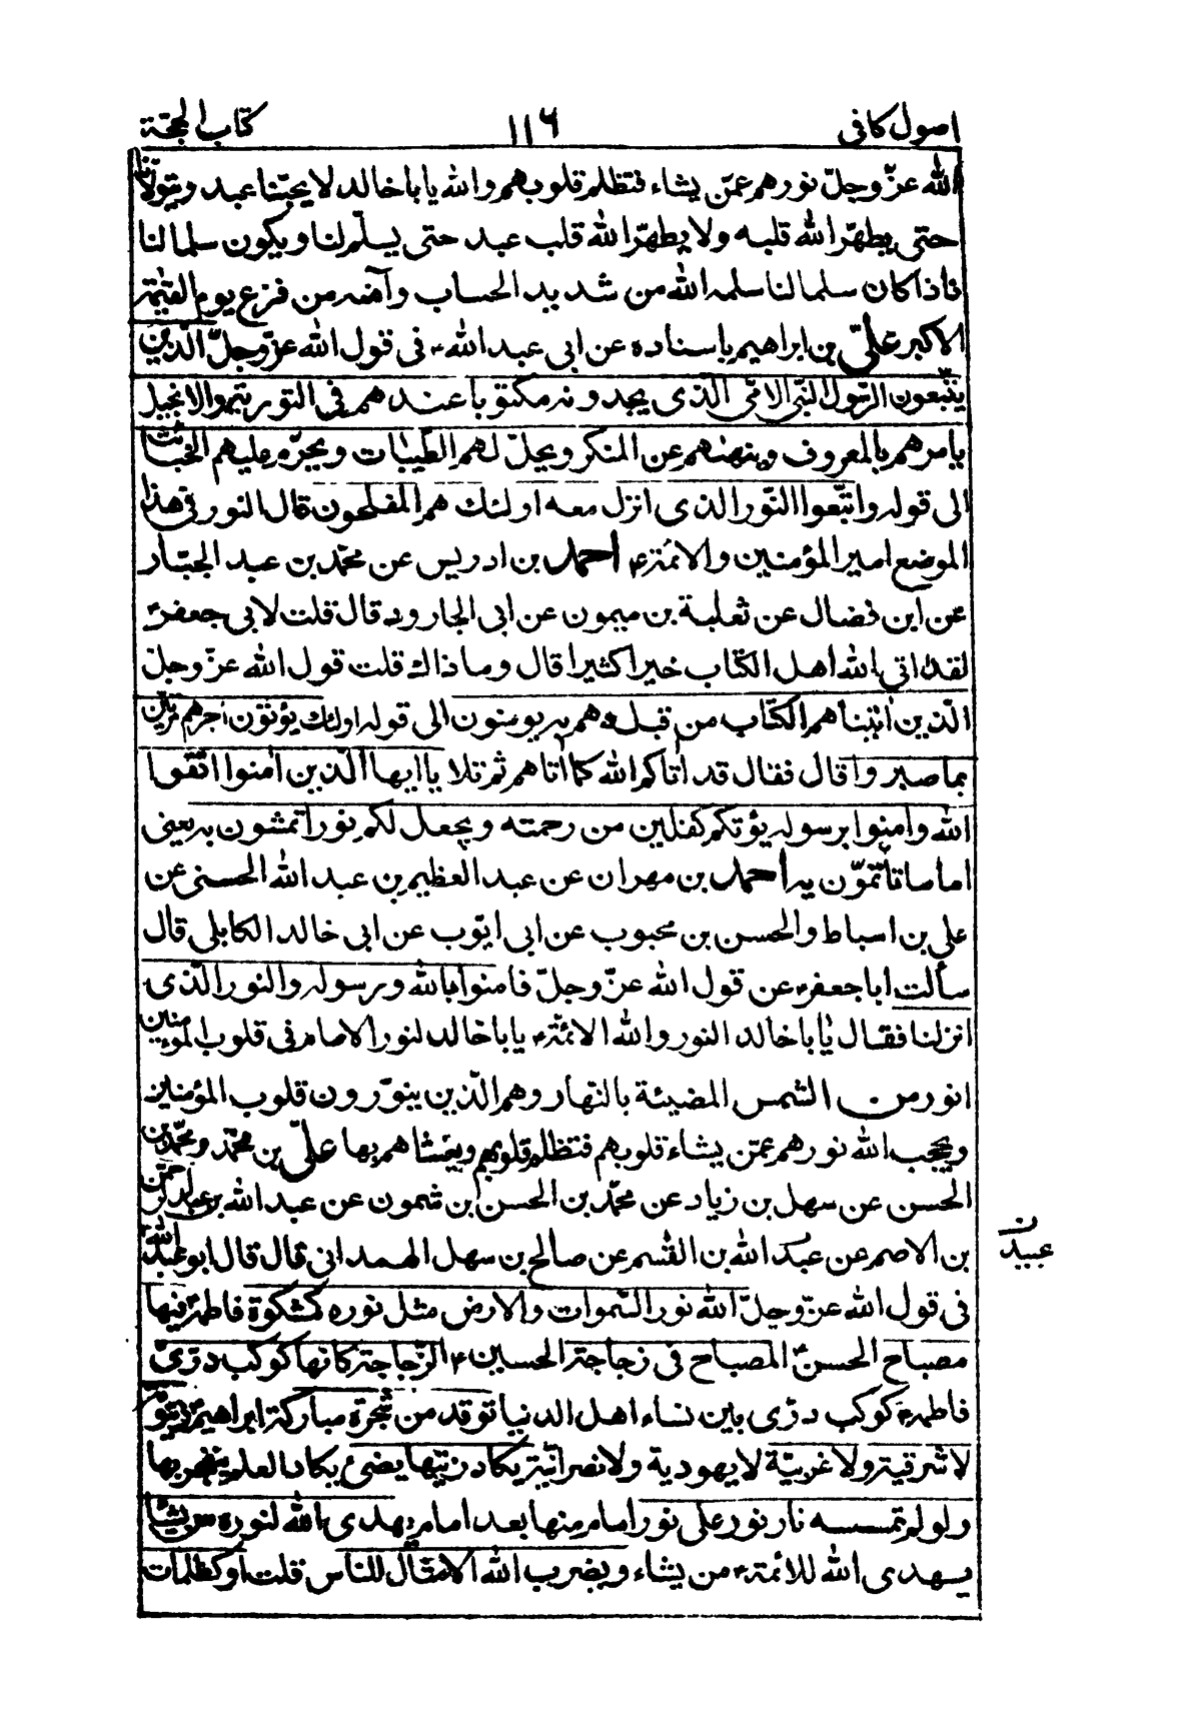 اصول كافى ١١٦ كتاب الحجّة
الله عزّ وجلّ نورهم عمّن يشاء فتظلم قلوبهم والله يا باخالد لا يحبّنا عبد ويتولّانا
حتى يطهّر الله قلبه ولا يطهّر الله قلب عبد حتى يسلّم لنا ويكون سلما لنا
فاذا كان سلما لنا سلمه الله من شديد الحساب وآمنه من فزع يوم القيٰمة
الاكبر علىّ بن ابراهيم باسناده عن ابى عبد الله ع فى قول الله عزّ وجلّ الّذين
يتّبعون الرّسول النّبى الامّى الّذى يجدونه مكتوبا عندهم فى التورٰية والانجيل
يامرهم بالمعروف وينهٰهم عن المنكر ويحلّ لهم الطّيّبات ويحرّم عليهم الخبائث
الى قوله واتّبعوا النّور الذى انزل معه اولئك هم المفلحون قال النور فى هذا
الموضع امير المؤمنين والائمّة ع احمد بن ادريس عن محمّد بن عبد الجبّار
عن ابن فضال عن ثعلبة بن ميمون عن ابى الجارود قال قلت لابى جعفر ع
لقد اٰتى الله اهل الكتاب خيرا كثيرا قال وما ذاك قلت قول الله عزّ وجلّ
الّذين اٰتينٰاهم الكتاب من قبله هم به يومنون الى قوله اولئك يؤتون اجرهم مرّتين
بما صبروا قال فقال قد اٰتاكم الله كما اٰتاهم ثم تلا يا ايها الّذين اٰمنوا اتّقوا
الله واٰمنوا برسوله يؤتكم كفلين من رحمته ويجعل لكم نورا تمشون به يعنى
اماما تاتمّون به احمد بن مهران عن عبد العظيم بن عبد الله الحسنى عن
على بن اسباط والحسن بن محبوب عن ابى ايّوب عن ابى خالد الكابلى قال
سألت ابا جعفر ع عن قول الله عزّ وجلّ فامنوا بالله ورسوله والنور الّذى
انزلنا فقال يٰا با خالد النور والله الائمّة ع يا با خالد لنور الامام فى قلوب المؤمنين
انور من الشمس المضيئة بالنهار وهم الّذين ينوّرون قلوب المؤمنين
ويحجب الله نورهم عمّن يشاء قلوبهم فتظلم قلوبهم ويغشاهم بها علىّ بن محمّد ومحمّد بن
الحسن عن سهل بن زياد عن محمّد بن الحسن بن شمون عن عبد الله بن عبد الرحمٰن
بن الاصم عن عبد الله بن القٰسم عن صالح بن سهل الهمدانى قال قال ابو عبد الله ع
عبيد ن
فى قول الله عزّ وجلّ الله نور السّموات والارض مثل نوره كمشكوة فاطمة ع فيها
مصباح الحسن ع المصباح فى زجاجة الحسين ع الزّجاجة كانها كوكب درّىّ
فاطمة ع كوكب درّى بين نساء اهل الدنيا توقد من شجرة مباركة ابراهيم ع زيتونة
لا شرقية ولا غربيّة لا يهودية ولا نصرانيّة يكاد زيتها يضىٔ يكاد العلم ينفجر بها
ولو لم تمسسه نار نور على نور امام منها بعد امام يهدى الله لنوره من يشاء
يهدى الله للائمة ع من يشاء ويضرب الله الامثال للناس قلت او كظلمات